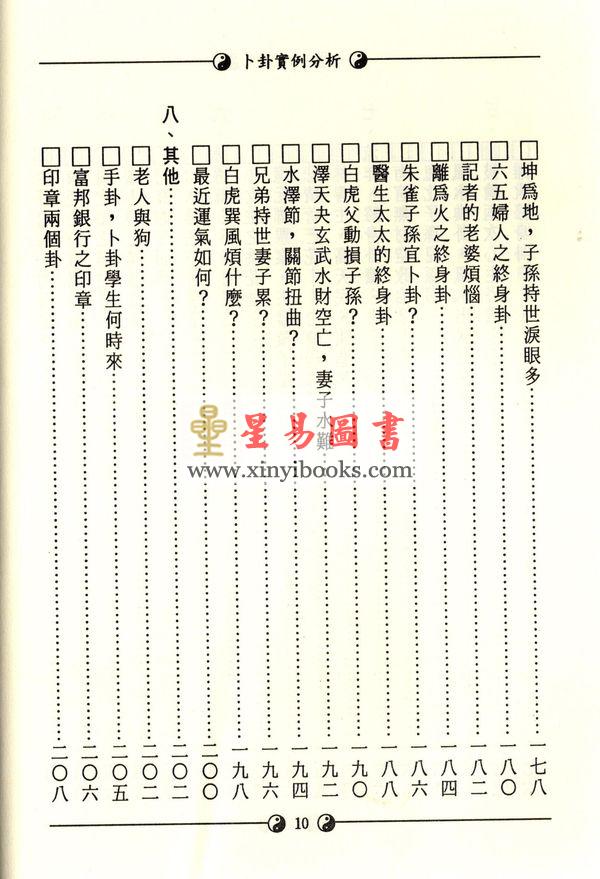 卜卦實例分析
□坤為地，子孫持世淚眼多……一七八
□六五婦人之終身卦……一八〇
□記者的老婆煩惱……一八二
□離為火之終身卦……一八四
□朱雀子孫宜卜卦？……一八六
□醫生太太的終身卦……一八八
□白虎父動損子孫？……一九〇
□澤天夬玄武水財空亡，妻子水難……一九二
□水澤節，關節扭曲？……一九四
□兄弟持世妻子累？……一九六
□白虎巽風煩什麼？……一九八
□最近運氣如何？……二〇〇
八、其他……二〇二
□老人與狗……二〇二
□手卦，卜卦學生何時來……二〇五
□富邦銀行之印章……二〇六
□印章兩個卦……二〇八
星易圖書
www.xinyibooks.com
10